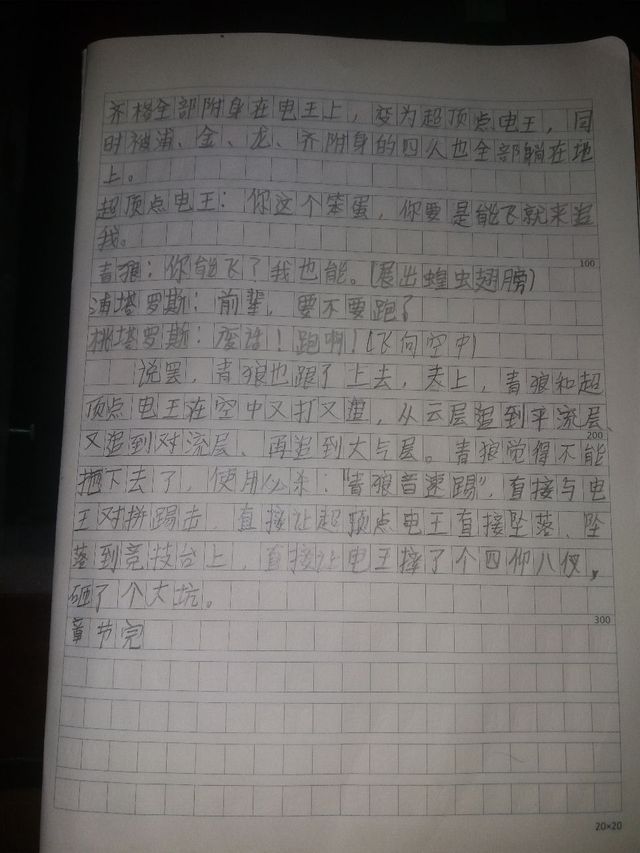 齐格全部附身在电王上，变为超顶点电王，同
时被浦、金、龙、齐附身的四人也全部躺在地
上。
超顶点电王：你这个笨蛋，你要是能飞就来追
我。
100
青狼：你能飞？我也能。（展出蝗虫翅膀）
浦塔罗斯：前辈，要不要跑了
桃塔罗斯：废话！跑啊！（飞向空中）
说罢，青狼也跟了上去，天上，青狼和超
顶点电王在空中又打又踢，从云层追到平流层
又追到对流层，再追到大气层。青狼觉得不能
200
拖下去了，使用必杀："青狼音速踢"，直接与电
王对拼踢击，直接让超顶点电王直接坠落，坠
落到竞技台上，直接让电王摔了个四仰八叉，
砸了个大坑。
300
章节完
20×20